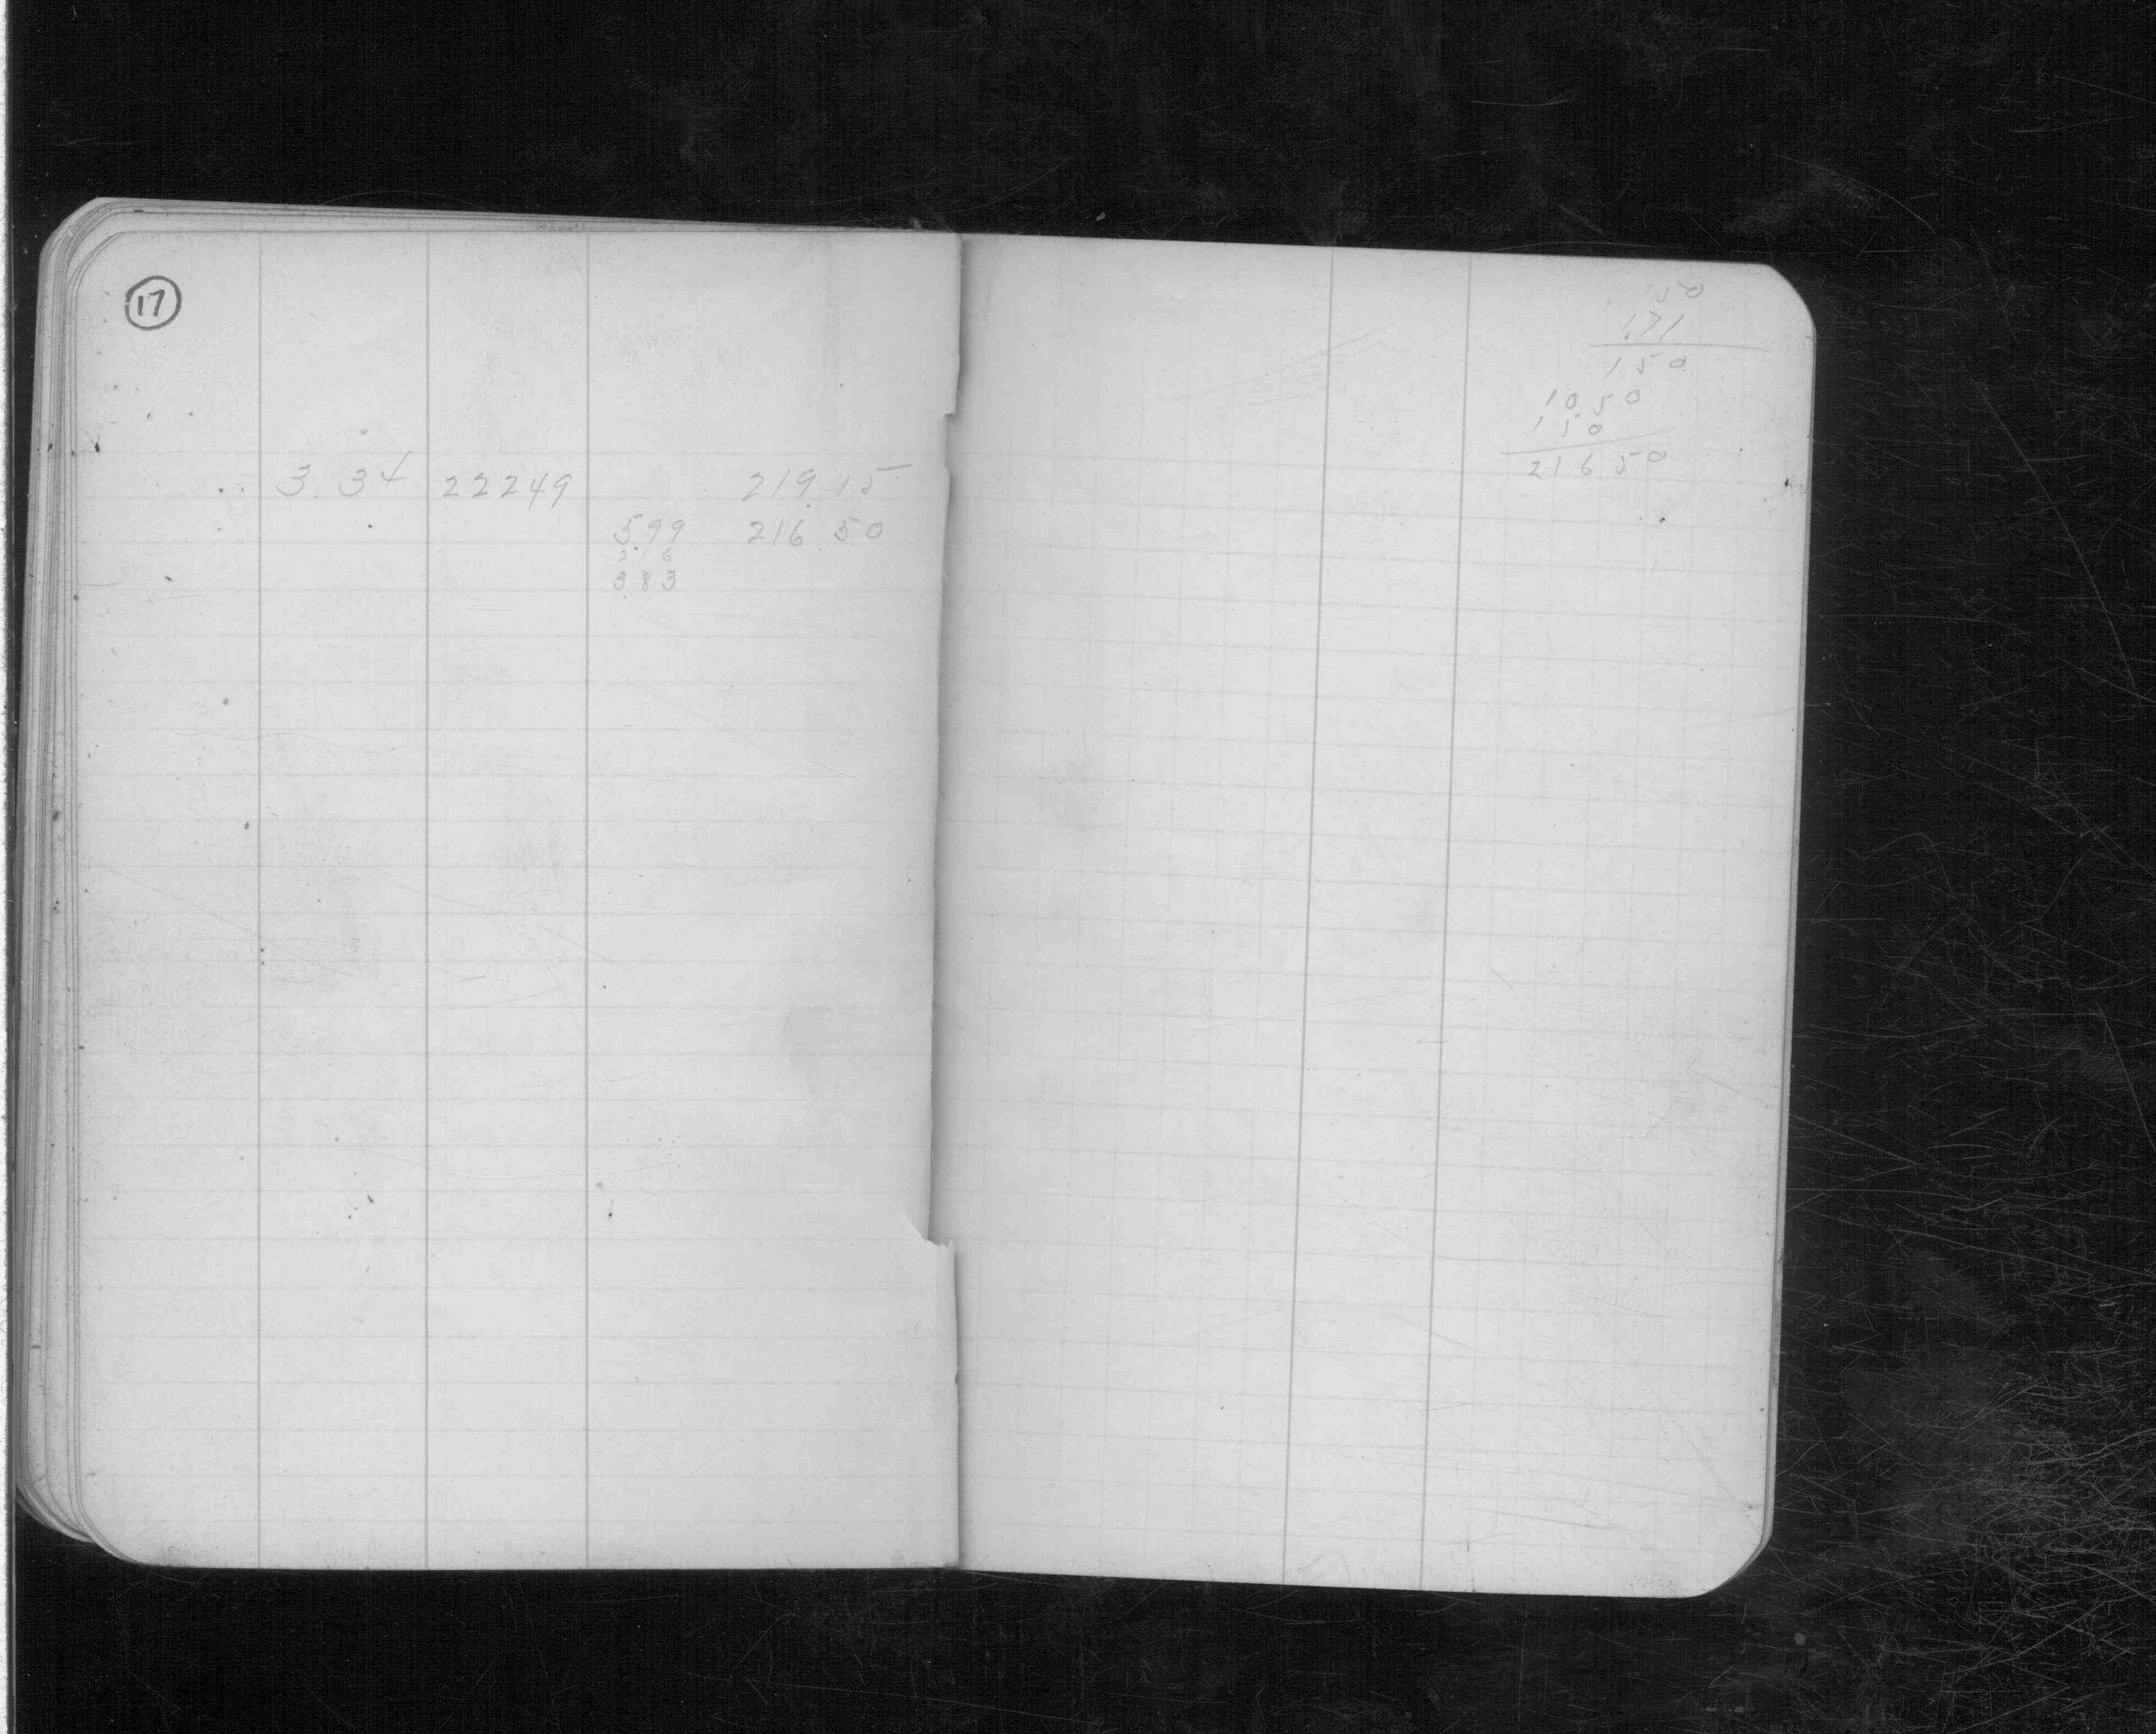 17
3.34 22249 219.15
599 216 50
216
383
150
171
150
1050
150
21650